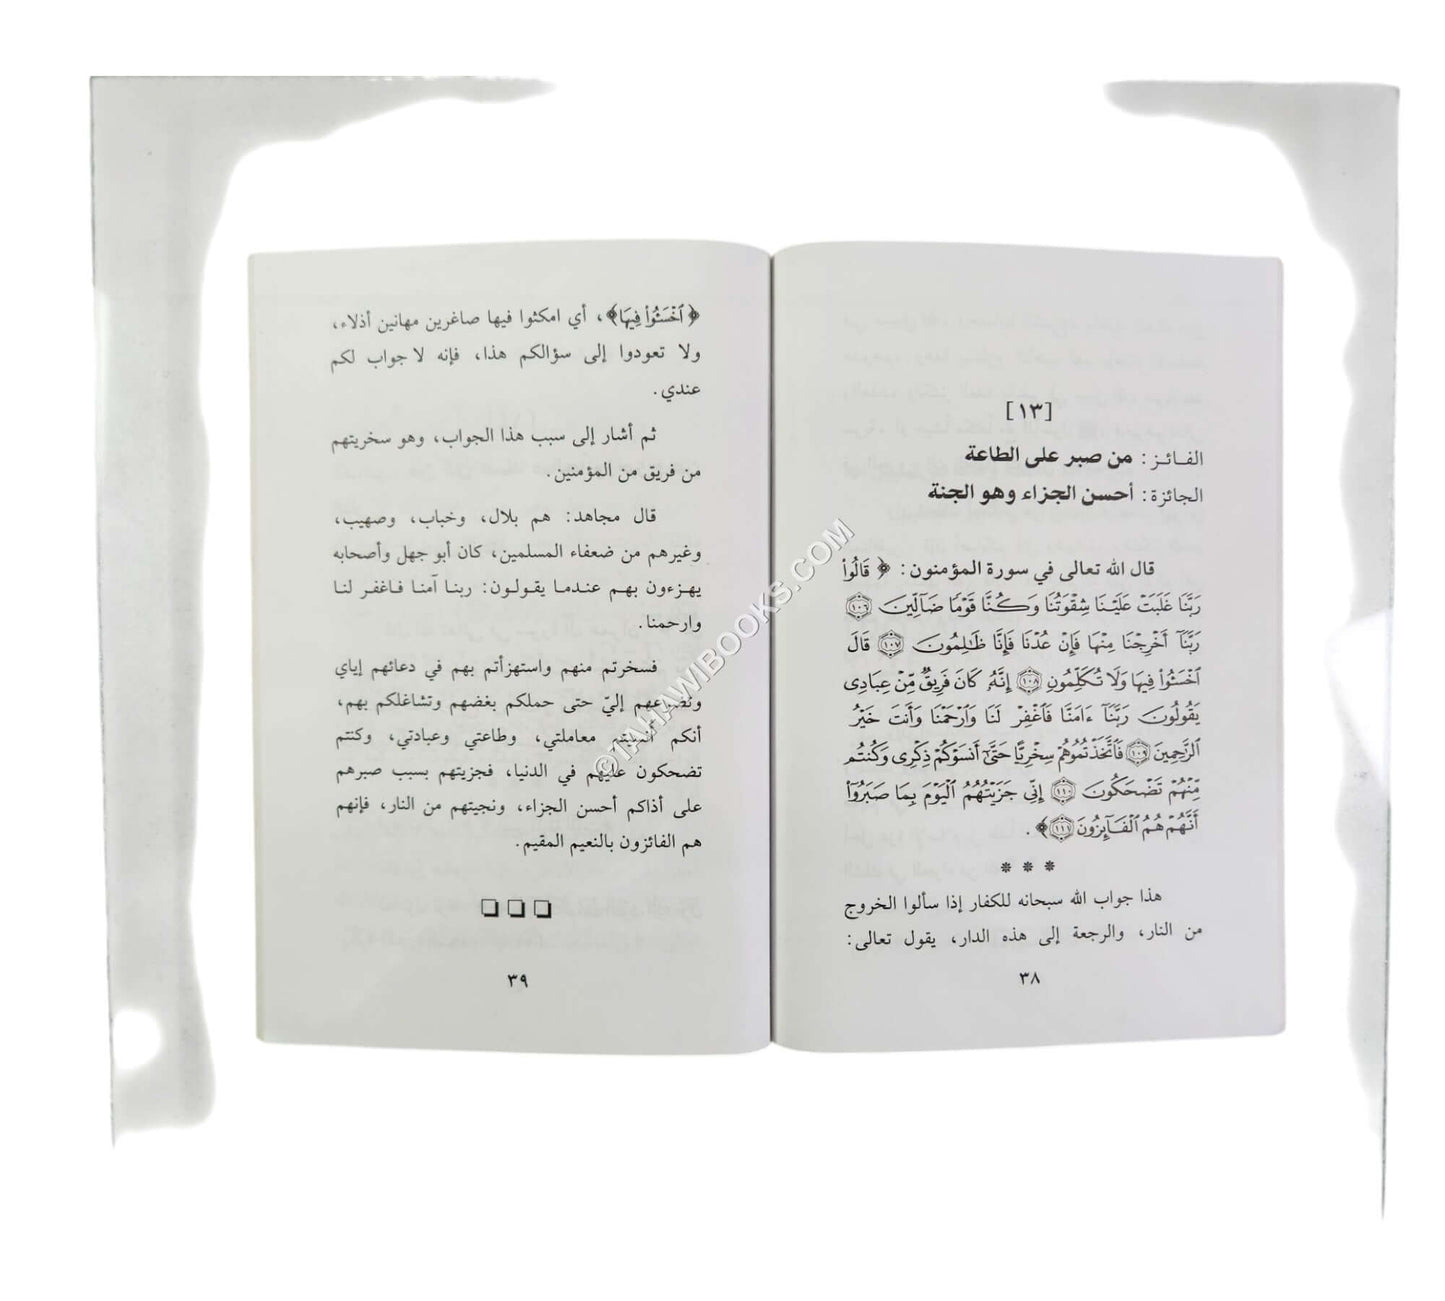 [١٣]
الفـائـز: من صبر على الطاعة
الجائزة: أحسن الجزاء وهو الجنة
قال الله تعالى في سورة المؤمنون: ﴿ قَالُوا۟
رَبَّنَا غَلَبَتْ عَلَيْنَا شِقْوَتُنَا وَكُنَّا قَوْمًا ضَآلِّينَ ۝١٠٦
رَبَّنَآ أَخْرِجْنَا مِنْهَا فَإِنْ عُدْنَا فَإِنَّا ظَٰلِمُونَ ۝١٠٧ قَالَ
ٱخْسَـُٔوا۟ فِيهَا وَلَا تُكَلِّمُونِ ۝١٠٨ إِنَّهُۥ كَانَ فَرِيقٌ مِّنْ عِبَادِى
يَقُولُونَ رَبَّنَآ ءَامَنَّا فَٱغْفِرْ لَنَا وَٱرْحَمْنَا وَأَنتَ خَيْرُ
ٱلرَّٰحِمِينَ ۝١٠٩ فَٱتَّخَذْتُمُوهُمْ سِخْرِيًّا حَتَّىٰٓ أَنسَوْكُمْ ذِكْرِى وَكُنتُم
مِّنْهُمْ تَضْحَكُونَ ۝١١٠ إِنِّى جَزَيْتُهُمُ ٱلْيَوْمَ بِمَا صَبَرُوٓا۟
أَنَّهُمْ هُمُ ٱلْفَآئِزُونَ ۝١١١﴾ .
* * *
هذا جواب الله سبحانه للكفار إذا سألوا الخروج
من النار، والرجعة إلى هذه الدار، يقول تعالى:
٣٨
﴿ٱخْسَـُٔوا۟ فِيهَا﴾، أي امكثوا فيها صاغرين مهانين أذلاء،
ولا تعودوا إلى سؤالكم هذا، فإنه لا جواب لكم
عندي.
ثم أشار إلى سبب هذا الجواب، وهو سخريتهم
من فريق من المؤمنين.
قال مجاهد: هم بلال، وخباب، وصهيب،
وغيرهم من ضعفاء المسلمين، كان أبو جهل وأصحابه
يهزءون بهم عندما يقولون: ربنا آمنا فاغفر لنا
وارحمنا.
فسخرتم منهم واستهزأتم بهم في دعائهم إياي
وتضرعهم إليّ حتى حملكم بغضهم وتشاغلكم بهم،
أنكم أنسيتم معاملتي، وطاعتي وعبادتي، وكنتم
تضحكون عليهم في الدنيا، فجزيتهم بسبب صبرهم
على أذاكم أحسن الجزاء، ونجيتهم من النار، فإنهم
هم الفائزون بالنعيم المقيم.
٣٩
©TAHAWIBOOKS.COM